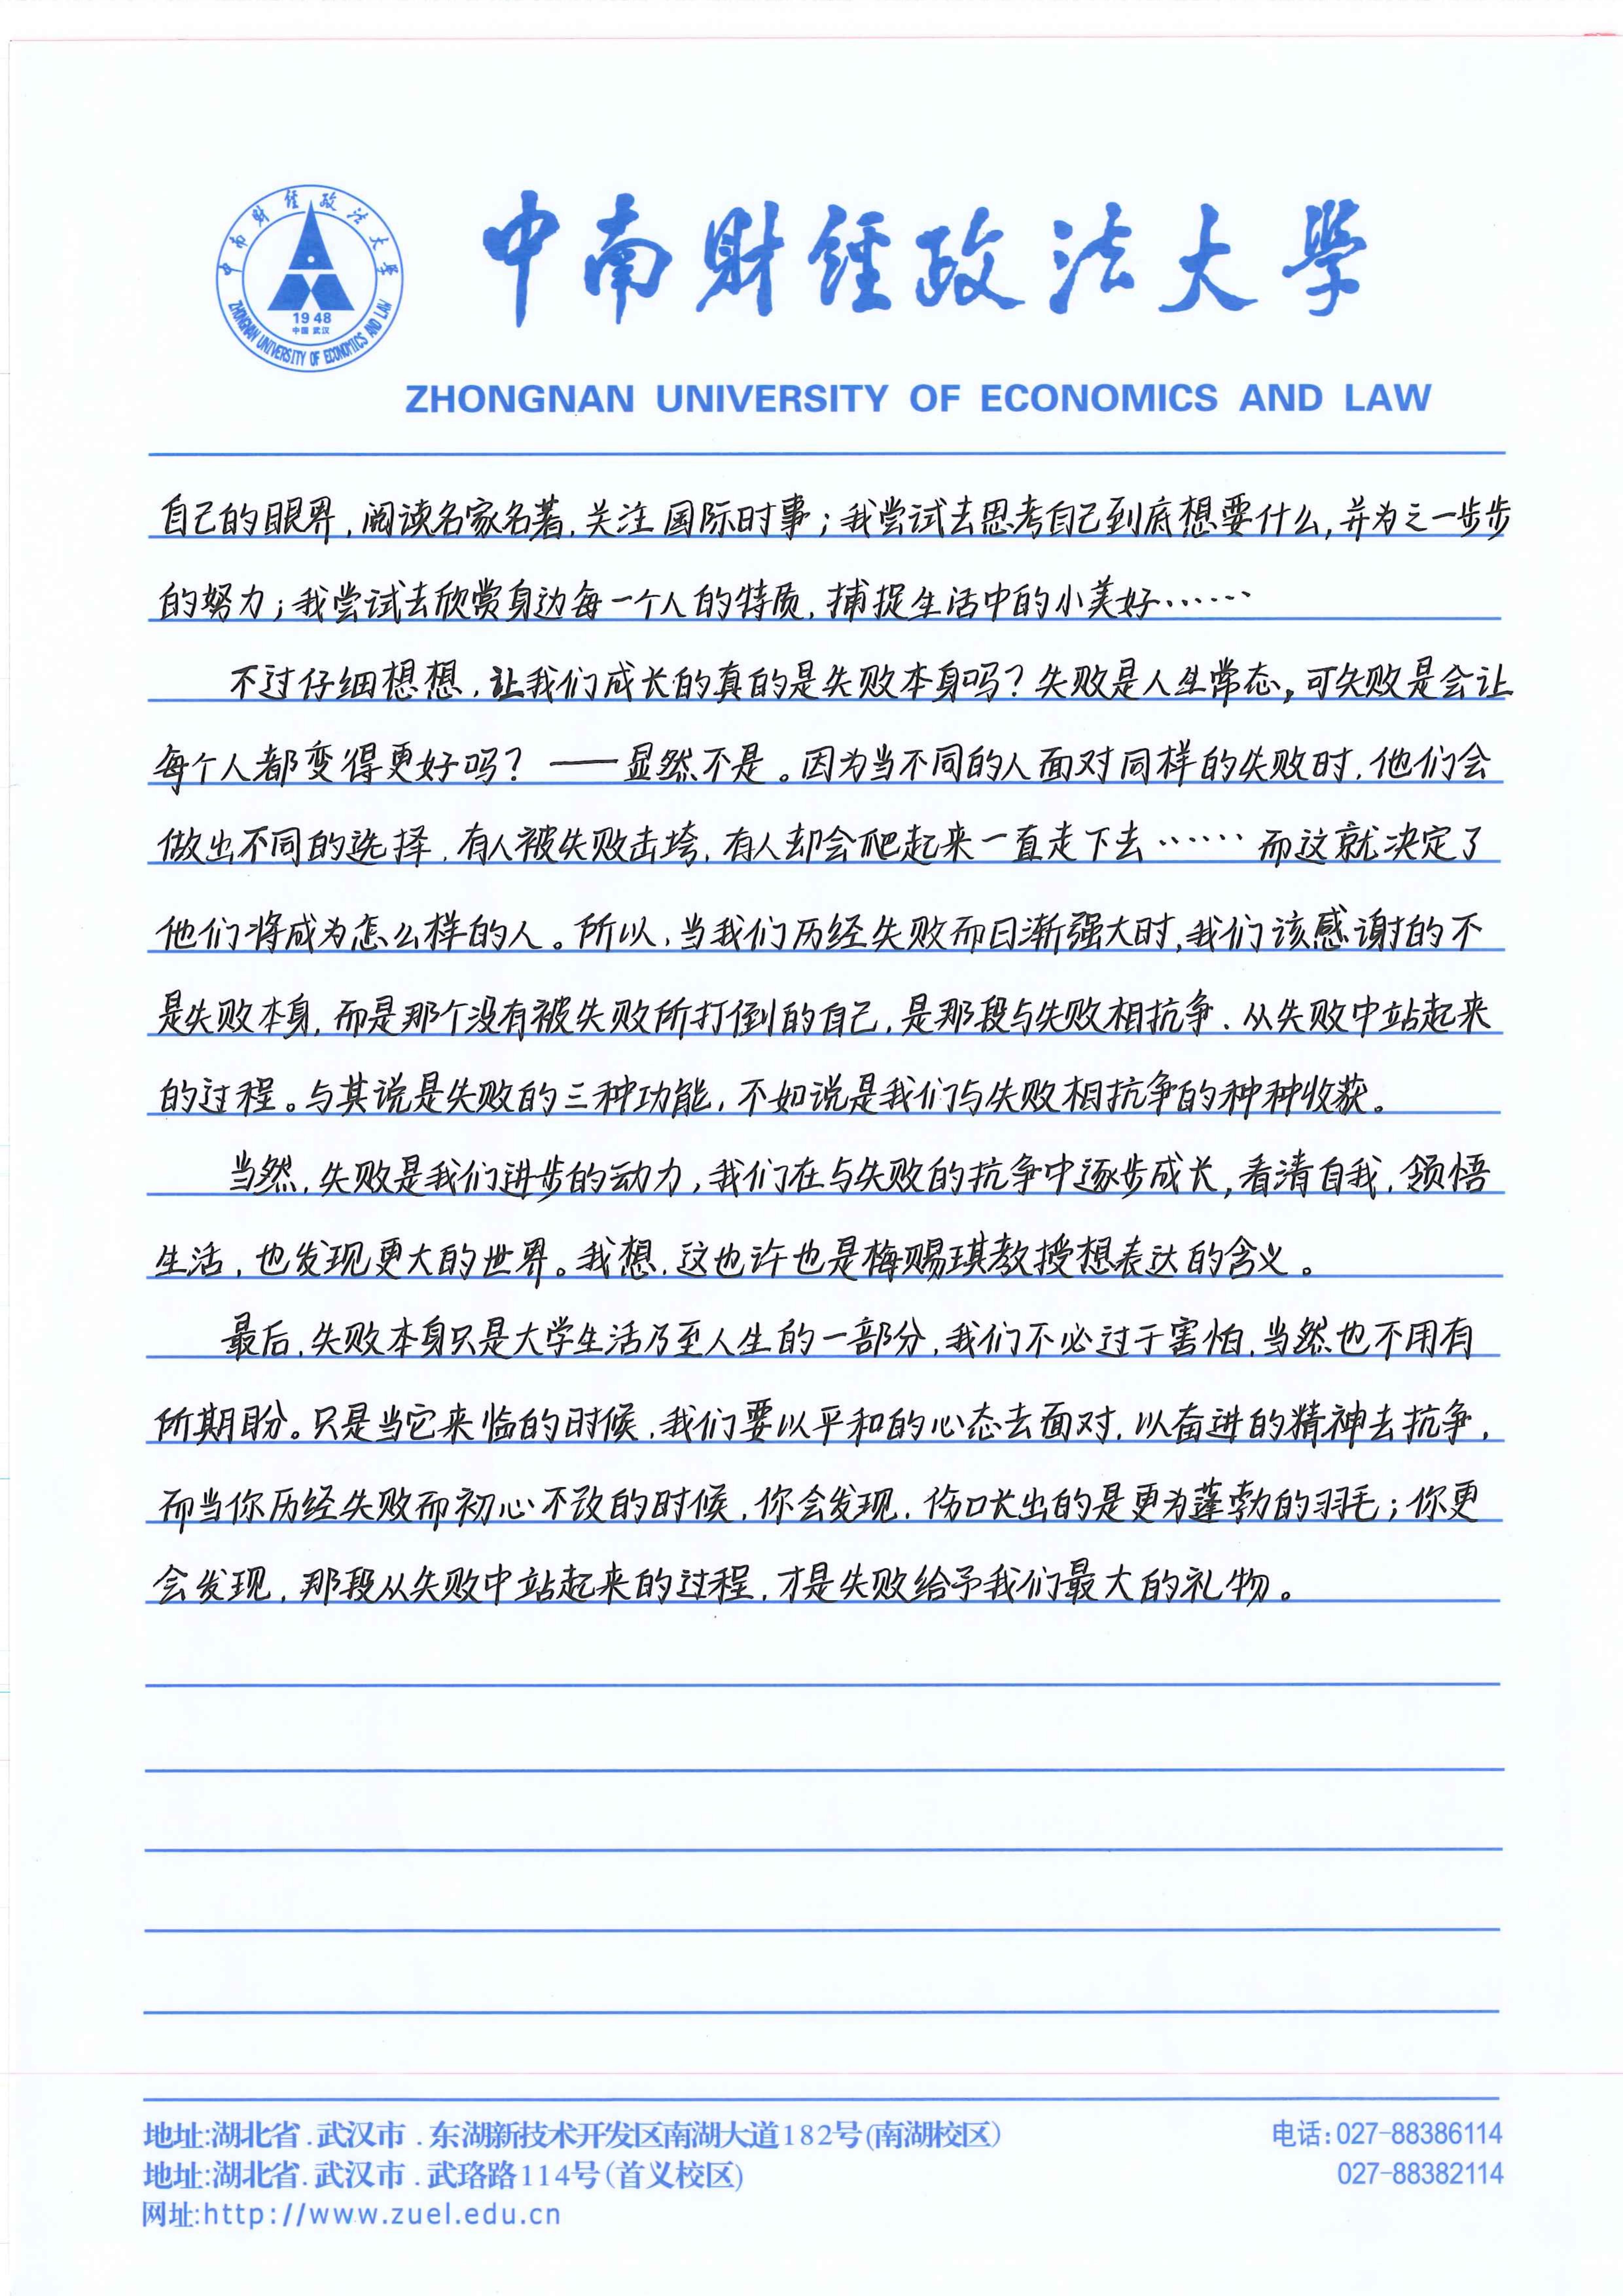 中南财经政法大学
ZHONGNAN UNIVERSITY OF ECONOMICS AND LAW
1948
中国 武汉
中南财经政法大學
ZHONGNAN UNIVERSITY OF ECONOMICS AND LAW
自己的眼界，阅读名家名著，关注国际时事；我尝试去思考自己到底想要什么，并为之一步步
的努力；我尝试去欣赏身边每一个人的特质，捕捉生活中的小美好……
不过仔细想想，让我们成长的真的是失败本身吗？失败是人生常态，可失败是会让
每个人都变得更好吗？——显然不是。因为当不同的人面对同样的失败时，他们会
做出不同的选择，有人被失败击垮，有人却会爬起来一直走下去……而这就决定了
他们将成为怎么样的人。所以，当我们历经失败而日渐强大时，我们该感谢的不
是失败本身，而是那个没有被失败所打倒的自己，是那段与失败相抗争、从失败中站起来
的过程。与其说是失败的三种功能，不如说是我们与失败相抗争的种种收获。
当然，失败是我们进步的动力，我们在与失败的抗争中逐步成长，看清自我，领悟
生活，也发现更大的世界。我想，这也许也是梅赐琪教授想表达的含义。
最后，失败本身只是大学生活乃至人生的一部分，我们不必过于害怕，当然也不用有
所期盼。只是当它来临的时候，我们要以平和的心态去面对，以奋进的精神去抗争，
而当你历经失败而初心不改的时候，你会发现，伤口长出的是更为蓬勃的羽毛；你更
会发现，那段从失败中站起来的过程，才是失败给予我们最大的礼物。
地址:湖北省.武汉市.东湖新技术开发区南湖大道182号(南湖校区)
电话:027-88386114
地址:湖北省.武汉市.武珞路114号(首义校区)
027-88382114
网址:http://www.zuel.edu.cn